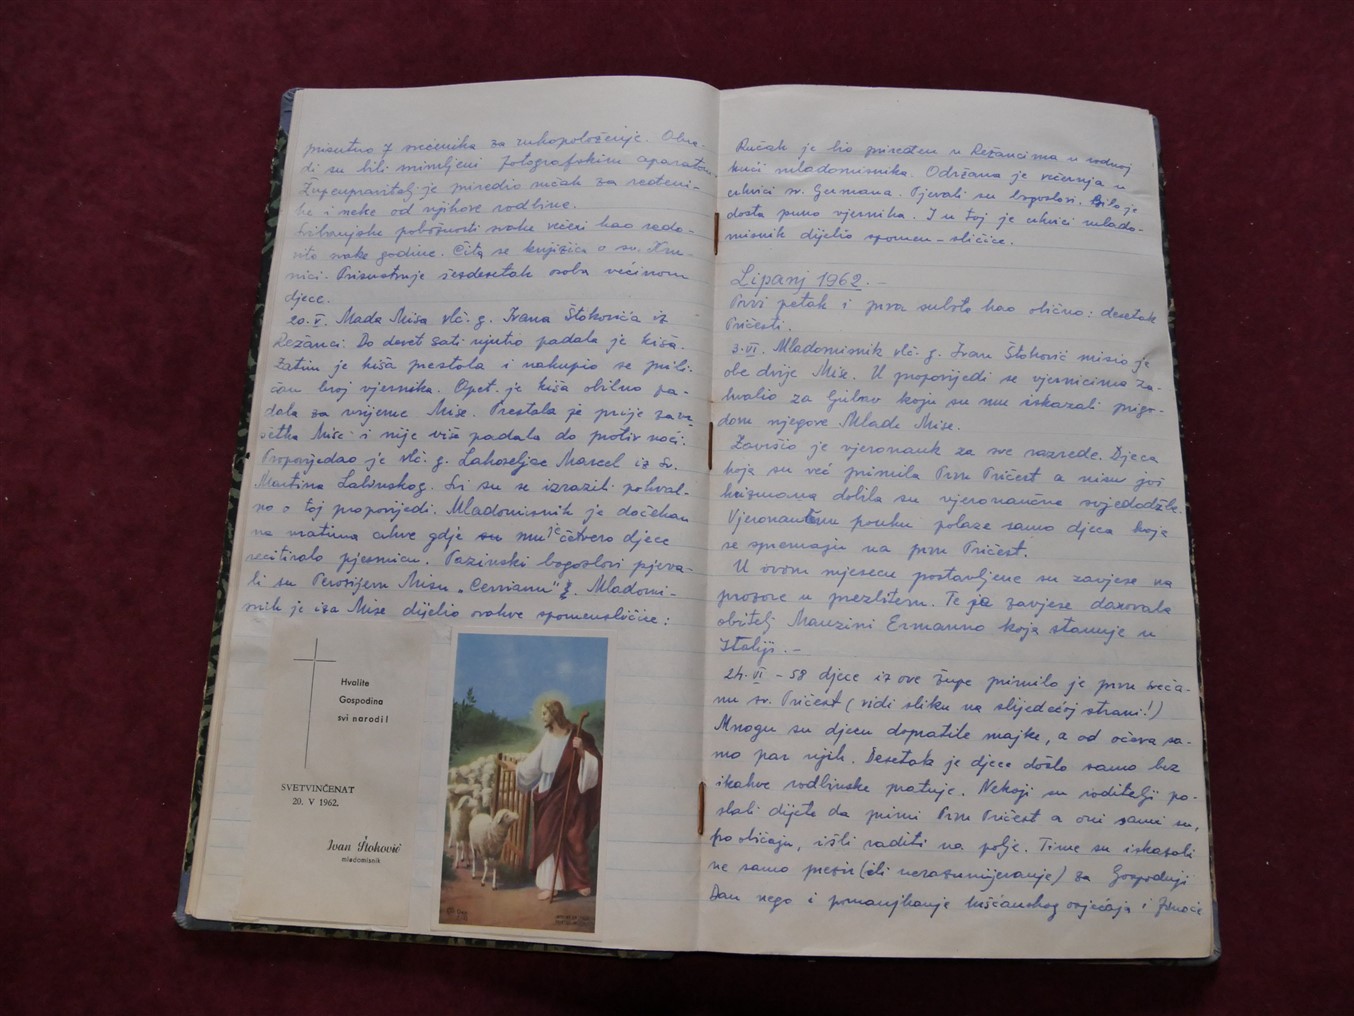 prisutno 7 svećenika za rukopoloženje. Obre-
di su bili snimljeni fotografskim aparatom.
Župeupravitelj je priredio ručak za ređeni-
ke i neke od njihove rodbine.
Svibanjske pobožnosti svake večeri kao redo-
vito svake godine. Čita se knjižica o sv. Kru-
nici. Prisustvuje šezdesetak osoba većinom
djece.
20. V. Mlada Misa vlč. g. Ivana Štokovića iz
Režanci. Do devet sati ujutro padala je kiša.
Zatim je kiša prestala i nakupio se prili-
čan broj vjernika. Opet je kiša obilno pa-
dala za vrijeme Mise. Prestala je prije svrš
šetka Mise i nije više padala do protiv noći.
Propovijedao je vlč. g. Marcel iz Sv.
Martina Labinskog. Svi su se izrazili pohval-
no o toj propovijedi. Mladomisnik je dočekan
na vratima crkve gdje mu je četvero djece
recitiralo pjesmicu. Pazinski bogoslovi pjeva-
li su Perosijevu Misu „Cerviana". Mladomi-
snik je iza Mise dijelio ovakve spomensličice:
Hvalite
Gospodina
svi narodi!
SVETVINČENAT
20. V 1962.
Ivan Štoković
mladomisnik
Ručak je bio priređen u Režancima u rodnoj
kući mladomisnika. Održana je večernja u
crkvici sv. Germana. Pjevali su bogoslovi. Bilo je
dosta puno vjernika. I u toj je crkvici mlado-
misnik dijelio spomen-sličice.
Lipanj 1962.-
Prvi petak i prva subota kao obično: desetak
Pričesti.
3. VI. Mladomisnik vlč. g. Ivan Štoković misio je
obe dvije Mise. U propovijedi se vjernicima za-
hvalio za ljubav koju su mu iskazali prigo-
dom njegove Mlade Mise.
Završio je vjeronauk za sve razrede. Djeca
koja su već primila Prvu Pričest a nisu još
krizmana dobila su vjeronaučne svjedodžbe.
Vjeronaučnu pouku polaze samo djeca koja
se spremaju na prvu Pričest.
U ovom mjesecu postavljene su zavjese na
prozore u prezbiteru. Te je zavjese darovala
obitelj Manzini Ermanno koja stanuje u
Italiji.-
24. VI - 58 djece iz ove župe primilo je prvu sveča-
nu sv. Pričest (vidi sliku na slijedećoj strani!)
Mnogu su djecu dopratile majke, a od očeva sa-
mo par njih. Desetak je djece došlo samo bez
ikakve rodbinske pratnje. Nekoji su roditelji po-
slali dijete da primi Prvu Pričest a oni sami su,
po običaju, išli raditi na polje. Time su iskazali
ne samo prezir (ili nerazumijevanje) za Gospodnji
Dan nego i pomanjkanje kršćanskog osjećaja i